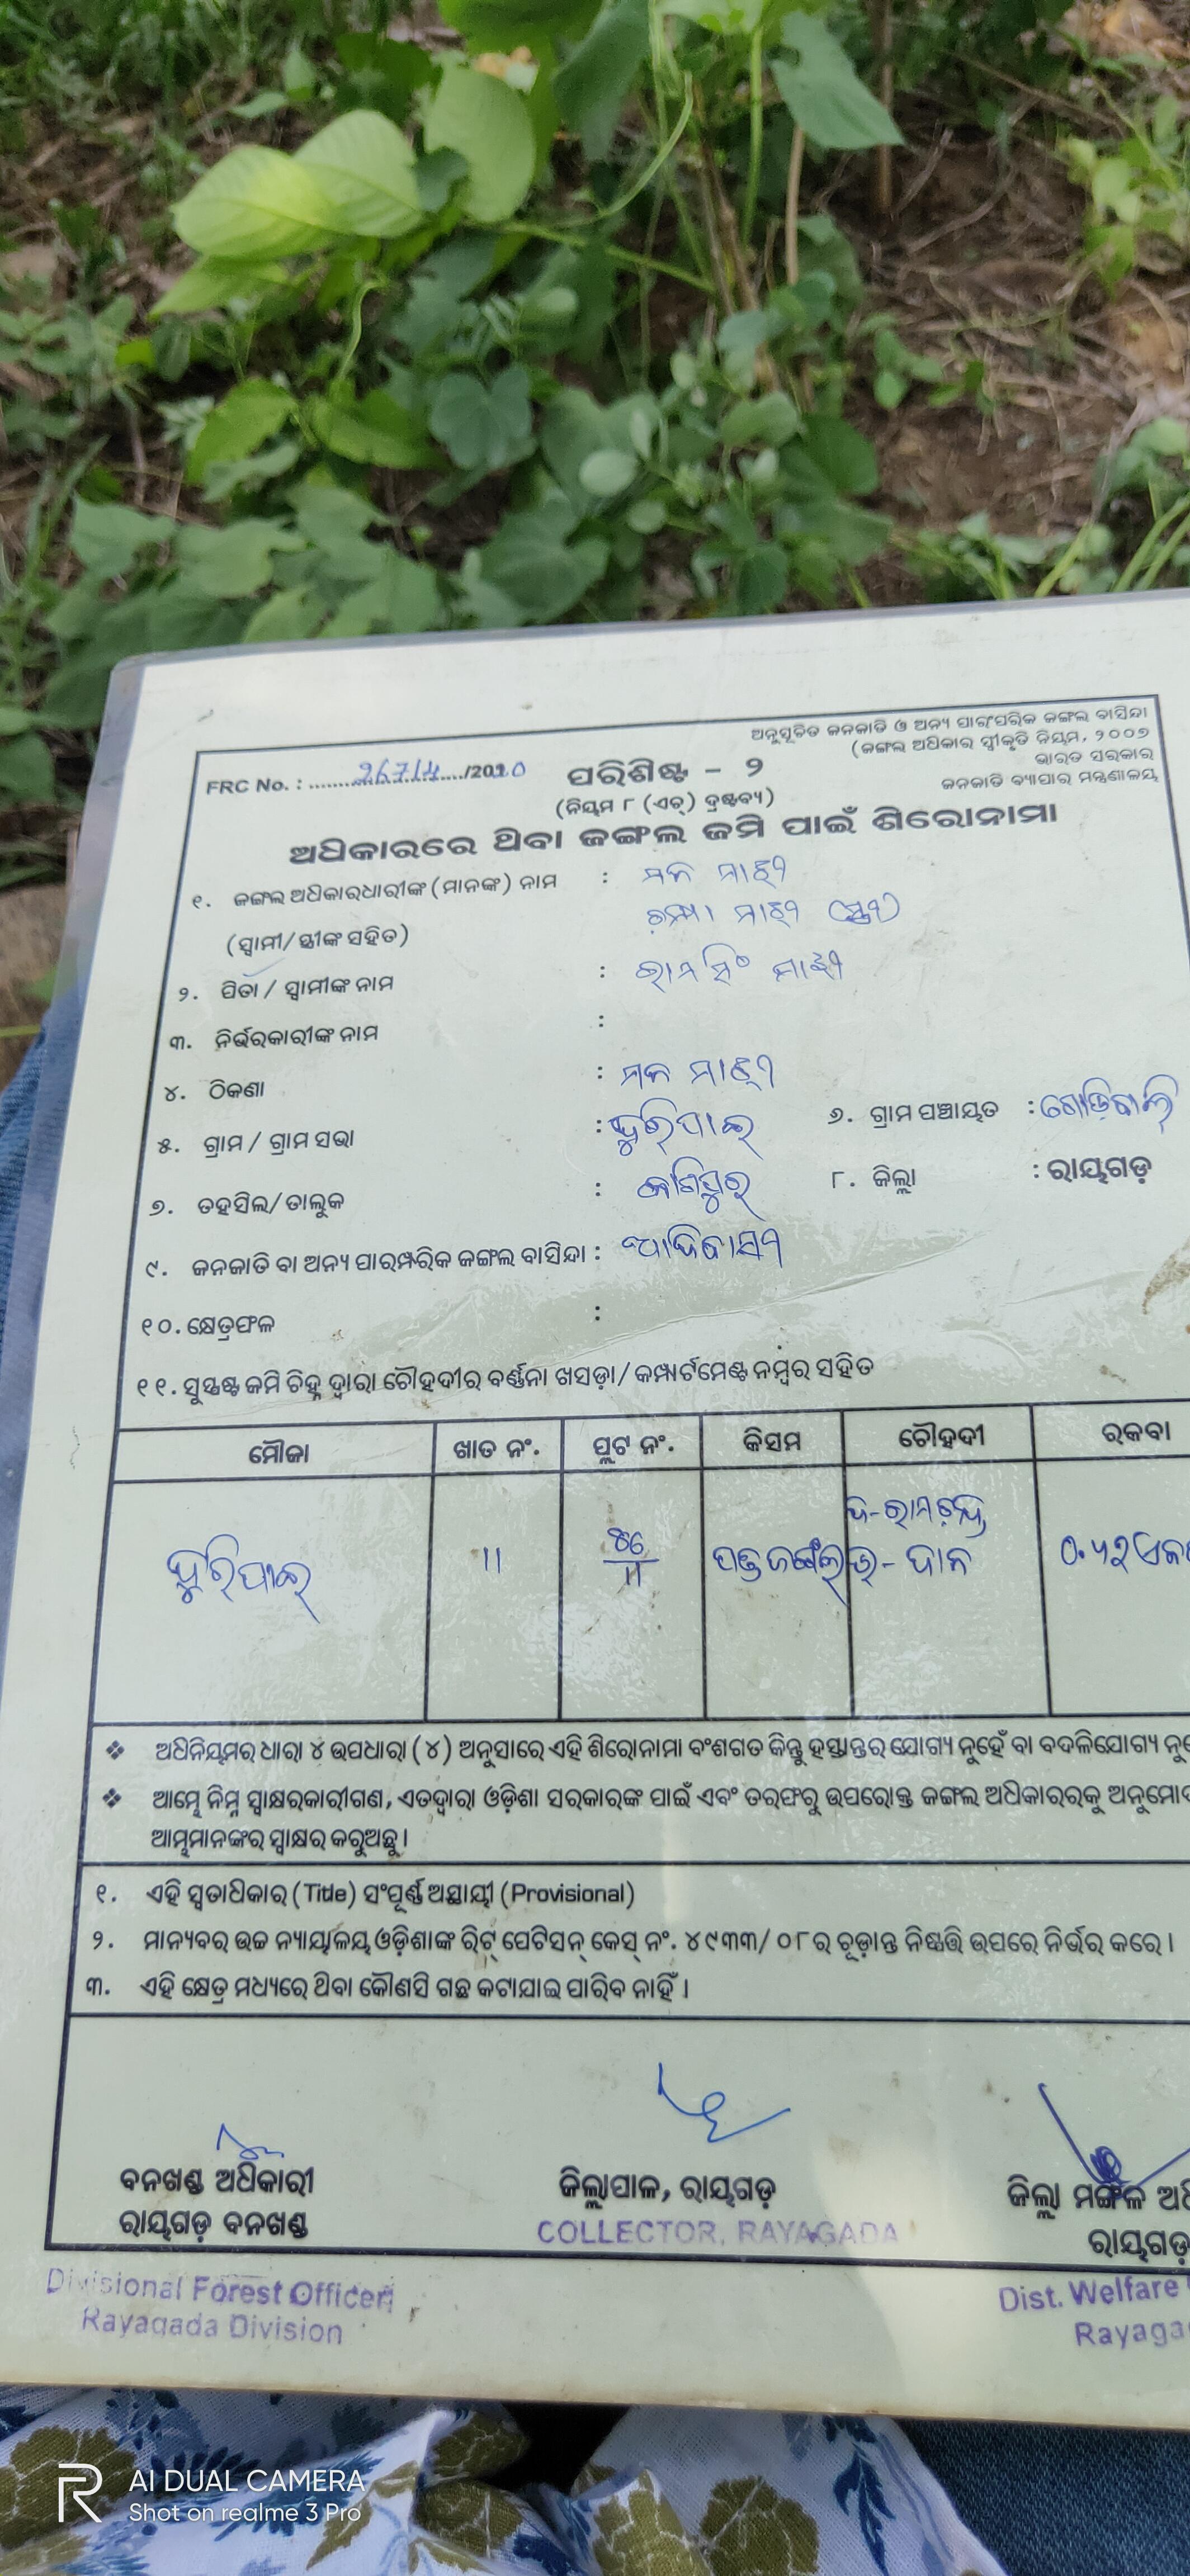 ଅନୁସୂଚିତ ଜନଜାତି ଓ ଅନ୍ୟ ପାରଂପରିକ ଜଙ୍ଗଲ ବାସିନ୍ଦା
(ଜଙ୍ଗଲ ଅଧିକାର ସ୍ୱୀକୃତି ନିୟମ, ୨୦୦୭
ଭାରତ ସରକାର
ଜନଜାତି ବ୍ୟାପାର ମନ୍ତ୍ରଣାଳୟ
FRC No. : /2010
ପରିଶିଷ୍ଟ - ୨
(ନିୟମ ୮ (ଏଚ୍) ଦ୍ରଷ୍ଟବ୍ୟ)
ଅଧିକାରରେ ଥିବା ଜଙ୍ଗଲ ଜମି ପାଇଁ ଶିରୋନାମା
୧. ଜଙ୍ଗଲ ଅଧିକାରଧାରୀଙ୍କ (ମାନଙ୍କ) ନାମ : ମାଝୀ
(ସ୍ୱାମୀ/ସ୍ତ୍ରୀଙ୍କ ସହିତ) ଚମ୍ପା ମାଝୀ (ସ୍ତ୍ରୀ)
୨. ପିତା / ସ୍ୱାମୀଙ୍କ ନାମ : ରାମସିଂ ମାଝୀ
୩. ନିର୍ଭରକାରୀଙ୍କ ନାମ :
୪. ଠିକଣା : ମାଝୀ
୫. ଗ୍ରାମ / ଗ୍ରାମ ସଭା : ୬. ଗ୍ରାମ ପଞ୍ଚାୟତ :
୭. ତହସିଲ/ତାଲୁକ : କାଶିପୁର ୮. ଜିଲ୍ଲା : ରାୟଗଡ଼
୯. ଜନଜାତି ବା ଅନ୍ୟ ପାରମ୍ପରିକ ଜଙ୍ଗଲ ବାସିନ୍ଦା : ଆଦିବାସୀ
୧୦. କ୍ଷେତ୍ରଫଳ :
୧୧. ସୁସ୍ପଷ୍ଟ ଜମି ଚିହ୍ନ ଦ୍ୱାରା ଚୌହଦୀର ବର୍ଣ୍ଣନା ଖସଡ଼ା/କମ୍ପାର୍ଟମେଣ୍ଟ ନମ୍ବର ସହିତ
ମୌଜା ଖାତ ନଂ. ପ୍ଲଟ ନଂ. କିସମ ଚୌହଦୀ ରକବା
11 ଜଙ୍ଗଲ
❖ ଅଧିନିୟମର ଧାରା ୪ ଉପଧାରା (୪) ଅନୁସାରେ ଏହି ଶିରୋନାମା ବଂଶଗତ କିନ୍ତୁ ହସ୍ତାନ୍ତର ଯୋଗ୍ୟ ନୁହେଁ ବା ବଦଳିଯୋଗ୍ୟ
❖ ଆମ୍ଭେ ନିମ୍ନ ସ୍ୱାକ୍ଷରକାରୀଗଣ, ଏତଦ୍ୱାରା ଓଡ଼ିଶା ସରକାରଙ୍କ ପାଇଁ ଏବଂ ତରଫରୁ ଉପରୋକ୍ତ ଜଙ୍ଗଲ ଅଧିକାରରକୁ
ଆମ୍ଭମାନଙ୍କର ସ୍ୱାକ୍ଷର କରୁଅଛୁ।
୧. ଏହି ସ୍ୱତାଧିକାର (Title) ସଂପୂର୍ଣ୍ଣ ଅସ୍ଥାୟୀ (Provisional)
୨. ମାନ୍ୟବର ଉଚ୍ଚ ନ୍ୟାୟାଳୟ ଓଡ଼ିଶାଙ୍କ ରିଟ୍ ପେଟିସନ୍ କେସ୍ ନଂ. ୪୯୩୩/୦୮ର ଚୂଡ଼ାନ୍ତ ନିଷ୍ପତ୍ତି ଉପରେ ନିର୍ଭର କରେ।
୩. ଏହି କ୍ଷେତ୍ର ମଧ୍ୟରେ ଥିବା କୌଣସି ଗଛ କଟାଯାଇ ପାରିବ ନାହିଁ।
ବନଖଣ୍ଡ ଅଧିକାରୀ ଜିଲ୍ଲାପାଳ, ରାୟଗଡ଼ ଜିଲ୍ଲା ମଙ୍ଗଳ
ରାୟଗଡ଼ ବନଖଣ୍ଡ COLLECTOR, RAYAGADA ରାୟଗଡ଼
Divisional Forest Officer Dist. Welfare
Rayagada Division
AI DUAL CAMERA
Shot on realme 3 Pro